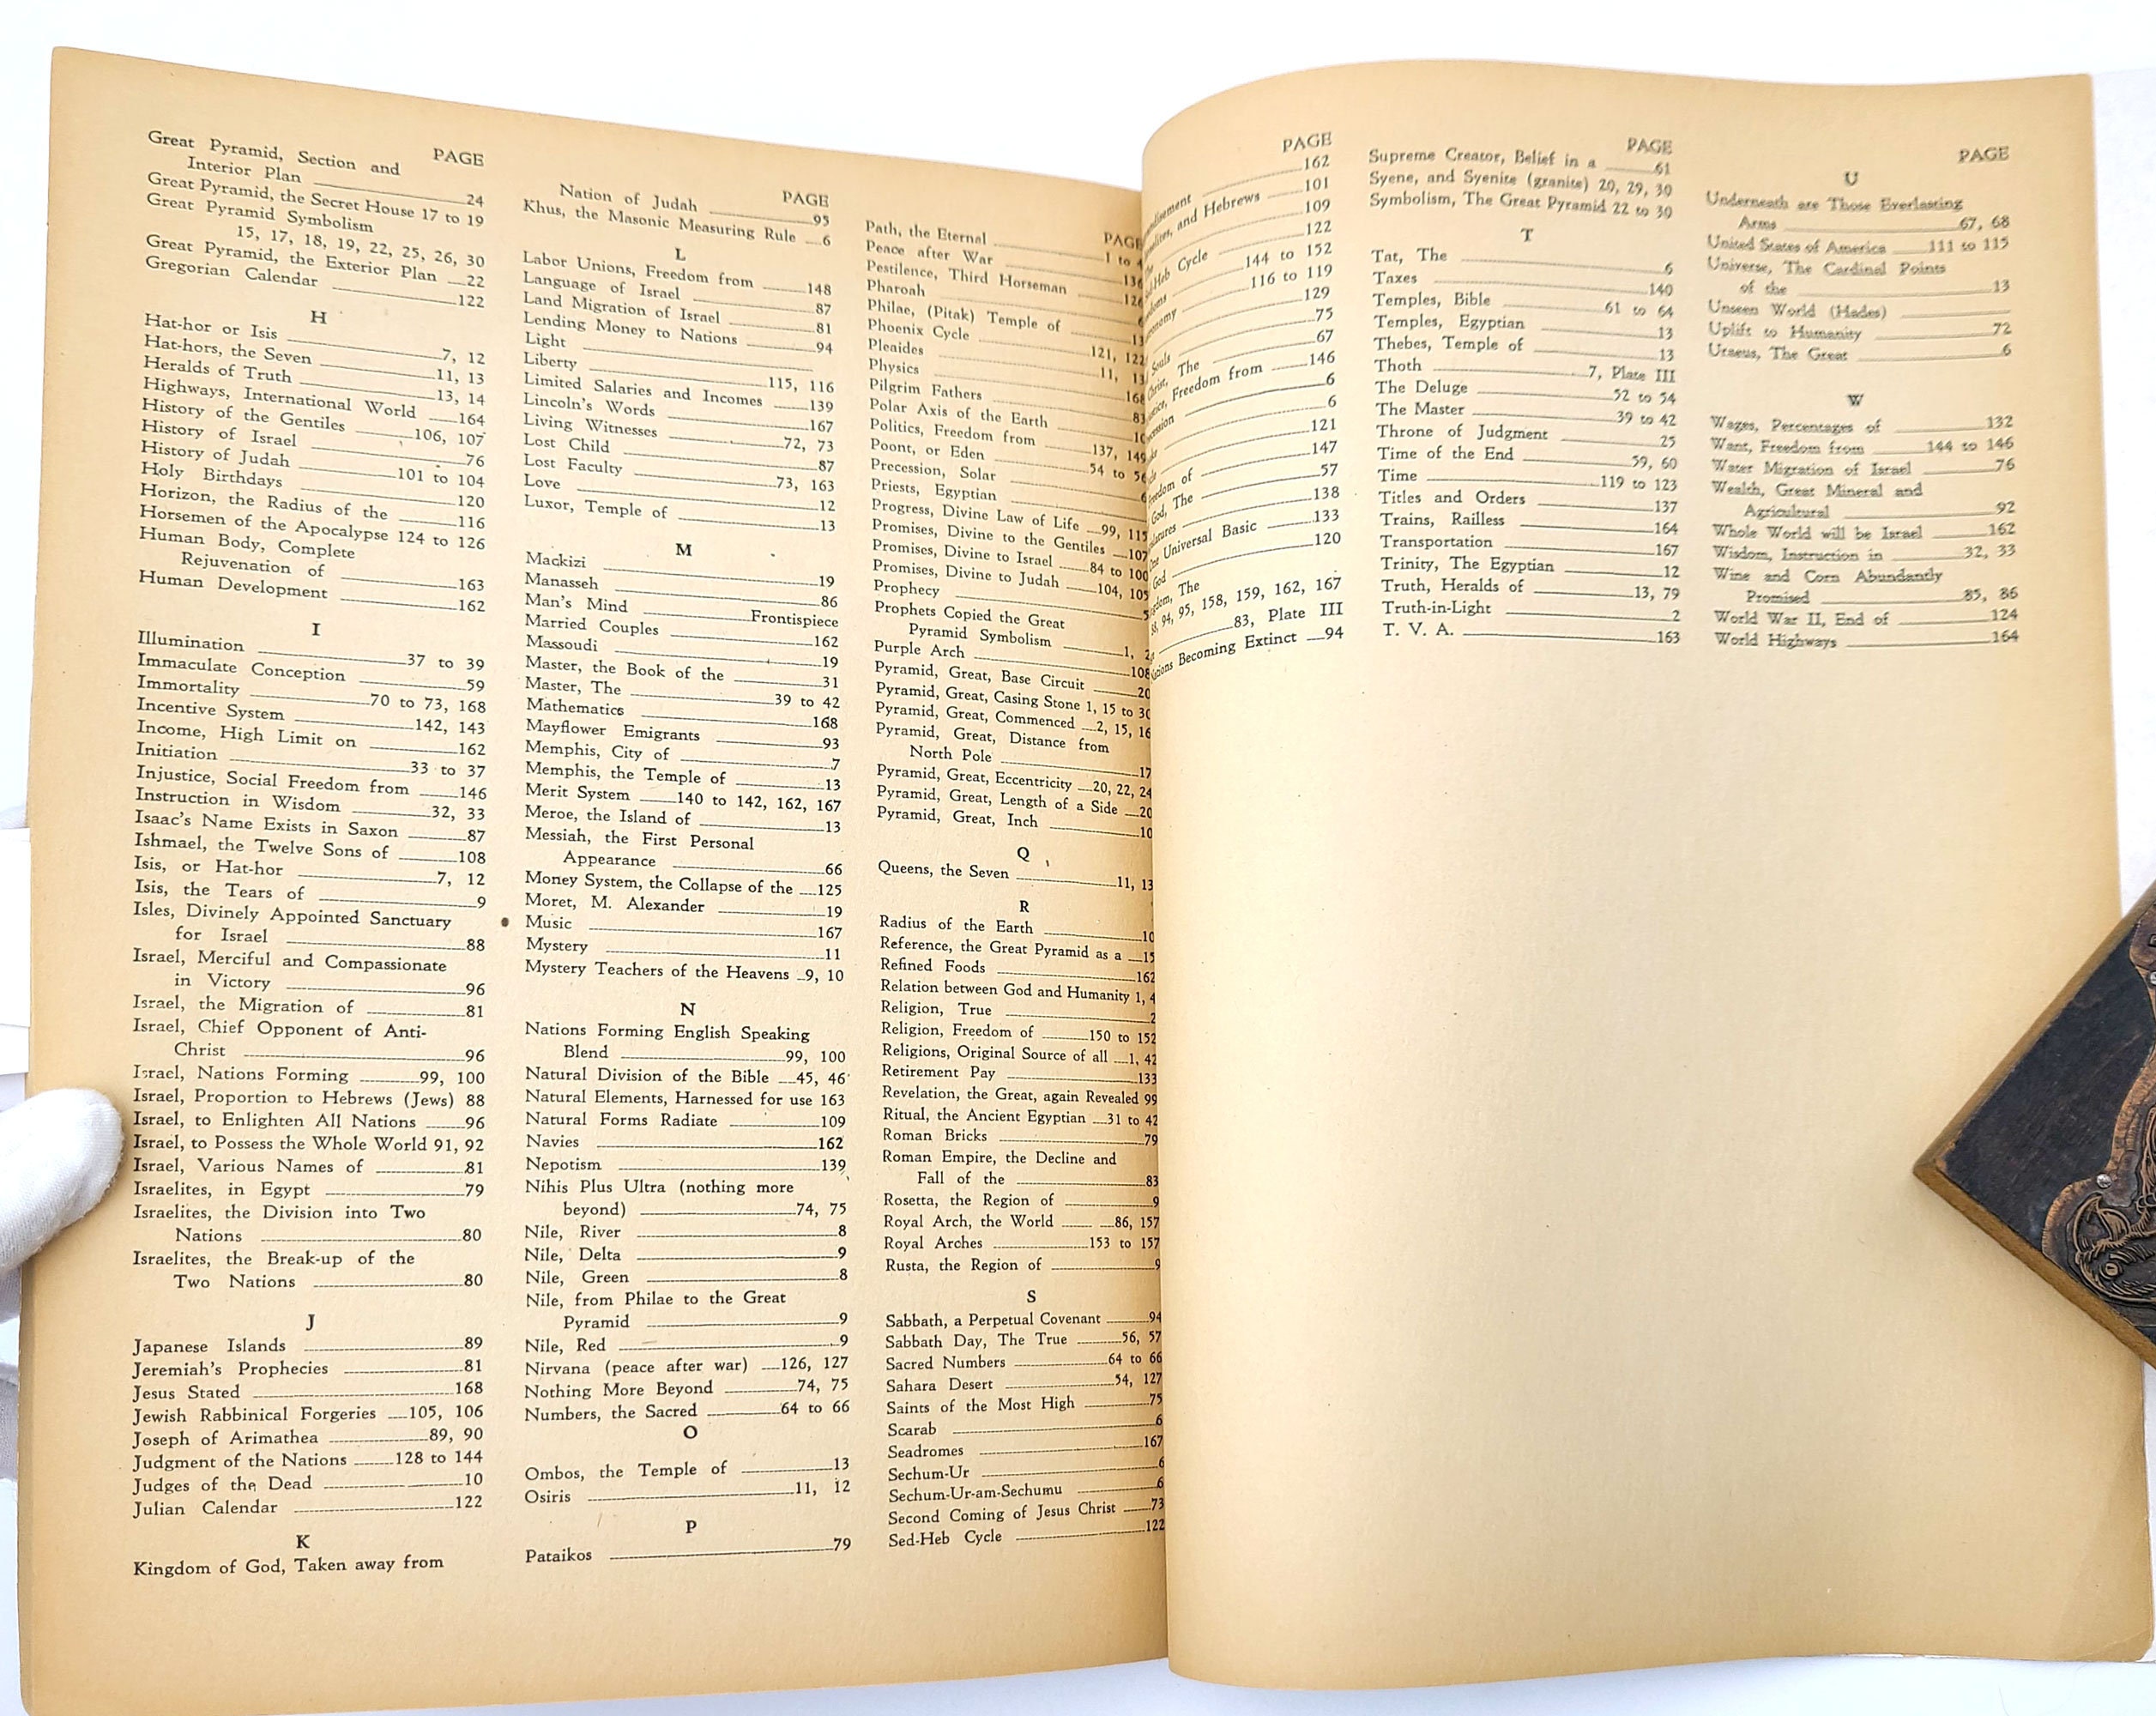 PAGE
Great Pyramid, Section and
Interior Plan 24
Great Pyramid, the Secret House 17 to 19
Great Pyramid Symbolism
15, 17, 18, 19, 22, 25, 26, 30
Great Pyramid, the Exterior Plan 22
Gregorian Calendar 122
H
Hat-hor or Isis 7, 12
Hat-hors, the Seven 11, 13
Heralds of Truth 13, 14
Highways, International World 164
History of the Gentiles 106, 107
History of Israel 76
History of Judah 101 to 104
Holy Birthdays 120
Horizon, the Radius of the 116
Horsemen of the Apocalypse 124 to 126
Human Body, Complete
Rejuvenation of 163
Human Development 162
I
Illumination 37 to 39
Immaculate Conception 59
Immortality 70 to 73, 168
Incentive System 142, 143
Income, High Limit on 162
Initiation 33 to 37
Injustice, Social Freedom from 146
Instruction in Wisdom 32, 33
Isaac's Name Exists in Saxon 87
Ishmael, the Twelve Sons of 108
Isis, or Hat-hor 7, 12
Isis, the Tears of 9
Isles, Divinely Appointed Sanctuary
for Israel 88
Israel, Merciful and Compassionate
in Victory 96
Israel, the Migration of 81
Israel, Chief Opponent of Anti-
Christ 96
Israel, Nations Forming 99, 100
Israel, Proportion to Hebrews (Jews) 88
Israel, to Enlighten All Nations 96
Israel, to Possess the Whole World 91, 92
Israel, Various Names of 81
Israelites, in Egypt 79
Israelites, the Division into Two
Nations 80
Israelites, the Break-up of the
Two Nations 80
J
Japanese Islands 89
Jeremiah's Prophecies 81
Jesus Stated 168
Jewish Rabbinical Forgeries 105, 106
Joseph of Arimathea 89, 90
Judgment of the Nations 128 to 144
Judges of the Dead 10
Julian Calendar 122
K
Kingdom of God, Taken away from
PAGE
Nation of Judah 95
Khus, the Masonic Measuring Rule 6
L
Labor Unions, Freedom from 148
Language of Israel 87
Land Migration of Israel 81
Lending Money to Nations 94
Light
Liberty 115, 116
Limited Salaries and Incomes 139
Lincoln's Words 167
Living Witnesses 72, 73
Lost Child 87
Lost Faculty 73, 163
Love 12
Luxor, Temple of 13
M
Mackizi 19
Manasseh 86
Man's Mind Frontispiece
Married Couples 162
Massoudi 19
Master, the Book of the 31
Master, The 39 to 42
Mathematics 168
Mayflower Emigrants 93
Memphis, City of 7
Memphis, the Temple of 13
Merit System 140 to 142, 162, 167
Meroe, the Island of 13
Messiah, the First Personal
Appearance 66
Money System, the Collapse of the 125
Moret, M. Alexander 19
Music 167
Mystery 11
Mystery Teachers of the Heavens 9, 10
N
Nations Forming English Speaking
Blend 99, 100
Natural Division of the Bible 45, 46
Natural Elements, Harnessed for use 163
Natural Forms Radiate 109
Navies 162
Nepotism 139
Nihis Plus Ultra (nothing more
beyond) 74, 75
Nile, River 8
Nile, Delta 9
Nile, Green 8
Nile, from Philae to the Great
Pyramid 9
Nile, Red 9
Nirvana (peace after war) 126, 127
Nothing More Beyond 74, 75
Numbers, the Sacred 64 to 66
O
Ombos, the Temple of 13
Osiris 11, 12
P
Pataikos 79
PAGE
Path, the Eternal 1 to 4
Peace after War 136
Pestilence, Third Horseman 126
Pharoah
Philae, (Pitak) Temple of 13
Phoenix Cycle 121, 122
Pleaides 11, 13
Physics 168
Pilgrim Fathers 83
Polar Axis of the Earth 10
Politics, Freedom from 137, 149
Poont, or Eden 54 to 56
Precession, Solar 6
Priests, Egyptian
Progress, Divine Law of Life 99, 115
Promises, Divine to the Gentiles 107
Promises, Divine to Israel 84 to 100
Promises, Divine to Judah 104, 105
Prophecy 5
Prophets Copied the Great
Pyramid Symbolism 1, 2
Purple Arch 108
Pyramid, Great, Base Circuit 20
Pyramid, Great, Casing Stone 1, 15 to 30
Pyramid, Great, Commenced 2, 15, 16
Pyramid, Great, Distance from
North Pole 17
Pyramid, Great, Eccentricity 20, 22, 24
Pyramid, Great, Length of a Side 20
Pyramid, Great, Inch 10
Q
Queens, the Seven 11, 13
R
Radius of the Earth 10
Reference, the Great Pyramid as a 15
Refined Foods 162
Relation between God and Humanity 1, 4
Religion, True 2
Religion, Freedom of 150 to 152
Religions, Original Source of all 1, 42
Retirement Pay 133
Revelation, the Great, again Revealed 99
Ritual, the Ancient Egyptian 31 to 42
Roman Bricks 79
Roman Empire, the Decline and
Fall of the 83
Rosetta, the Region of 9
Royal Arch, the World 86, 157
Royal Arches 153 to 157
Rusta, the Region of 9
S
Sabbath, a Perpetual Covenant 94
Sabbath Day, The True 56, 57
Sacred Numbers 64 to 66
Sahara Desert 54, 127
Saints of the Most High 75
Scarab 6
Seadromes 167
Sechum-Ur 6
Sechum-Ur-am-Sechumu 6
Second Coming of Jesus Christ 73
Sed-Heb Cycle 122
PAGE
162
and Hebrews 101
109
Cycle 122
144 to 152
116 to 119
129
Souls 75
Christ, The 67
Freedom from 146
6
6
121
of 147
God, The 57
138
Universal Basic 133
God 120
The
94, 95, 158, 159, 162, 167
83, Plate III
Becoming Extinct 94
PAGE
Supreme Creator, Belief in a 61
Syene, and Syenite (granite) 20, 29, 30
Symbolism, The Great Pyramid 22 to 30
T
Tat, The 6
Taxes 140
Temples, Bible 61 to 64
Temples, Egyptian 13
Thebes, Temple of 13
Thoth 7, Plate III
The Deluge 52 to 54
The Master 39 to 42
Throne of Judgment 25
Time of the End 59, 60
Time 119 to 123
Titles and Orders 137
Trains, Railless 164
Transportation 167
Trinity, The Egyptian 12
Truth, Heralds of 13, 79
Truth-in-Light 2
T. V. A. 163
PAGE
U
Underneath are Those Everlasting
Arms 67, 68
United States of America 111 to 115
Universe, The Cardinal Points
of the 13
Unseen World (Hades)
Uplift to Humanity 72
Uraeus, The Great 6
W
Wages, Percentages of 132
Want, Freedom from 144 to 146
Water Migration of Israel 76
Wealth, Great Mineral and
Agricultural 92
Whole World will be Israel 162
Wisdom, Instruction in 32, 33
Wine and Corn Abundantly
Promised 85, 86
World War II, End of 124
World Highways 164